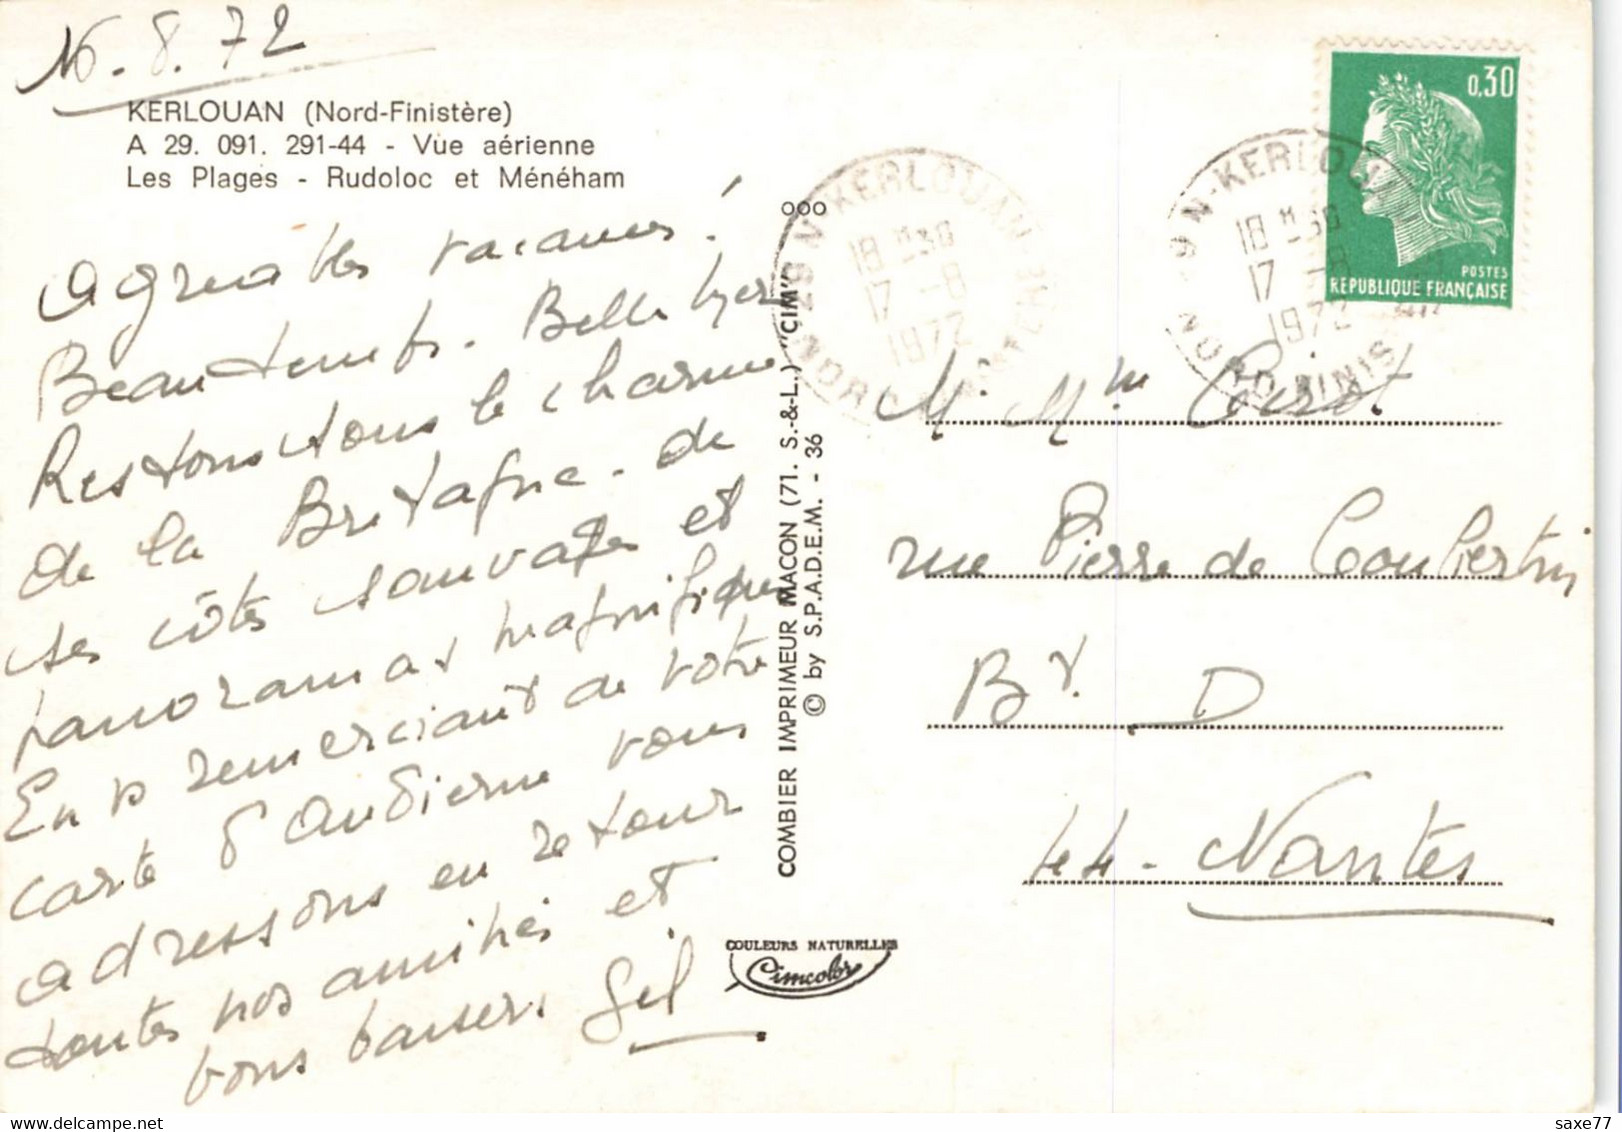 16.8.72
KERLOUAN (Nord-Finistère)
A 29. 091. 291-44 - Vue aérienne
Les Plages - Rudoloc et Ménéham
Agréables vacances!
Beau temps. Belle
Restons sous le charme
de la Bretagne. de
ses côtes sauvages et
panoramas magnifiques
En remerciant de votre
carte d'Audierne vous
adressons en retour
toutes nos amitiés et
bons baisers. Gil
ooo
COMBIER IMPRIMEUR MACON (71. S.-&-L.) "CIM"
© by S.P.A.D.E.M. - 36
COULEURS NATURELLES
Cimcolor
29 N-KERLOUAN
18 H30
17 -8
1972
NORD FINISTERE
N-KERLOUAN
18 H30
17 -8
1972
NORD FINIS
0,30
POSTES
REPUBLIQUE FRANÇAISE
Mr Mme
rue Pierre de Coubertin
Bt. D
44 - Nantes
saxe77